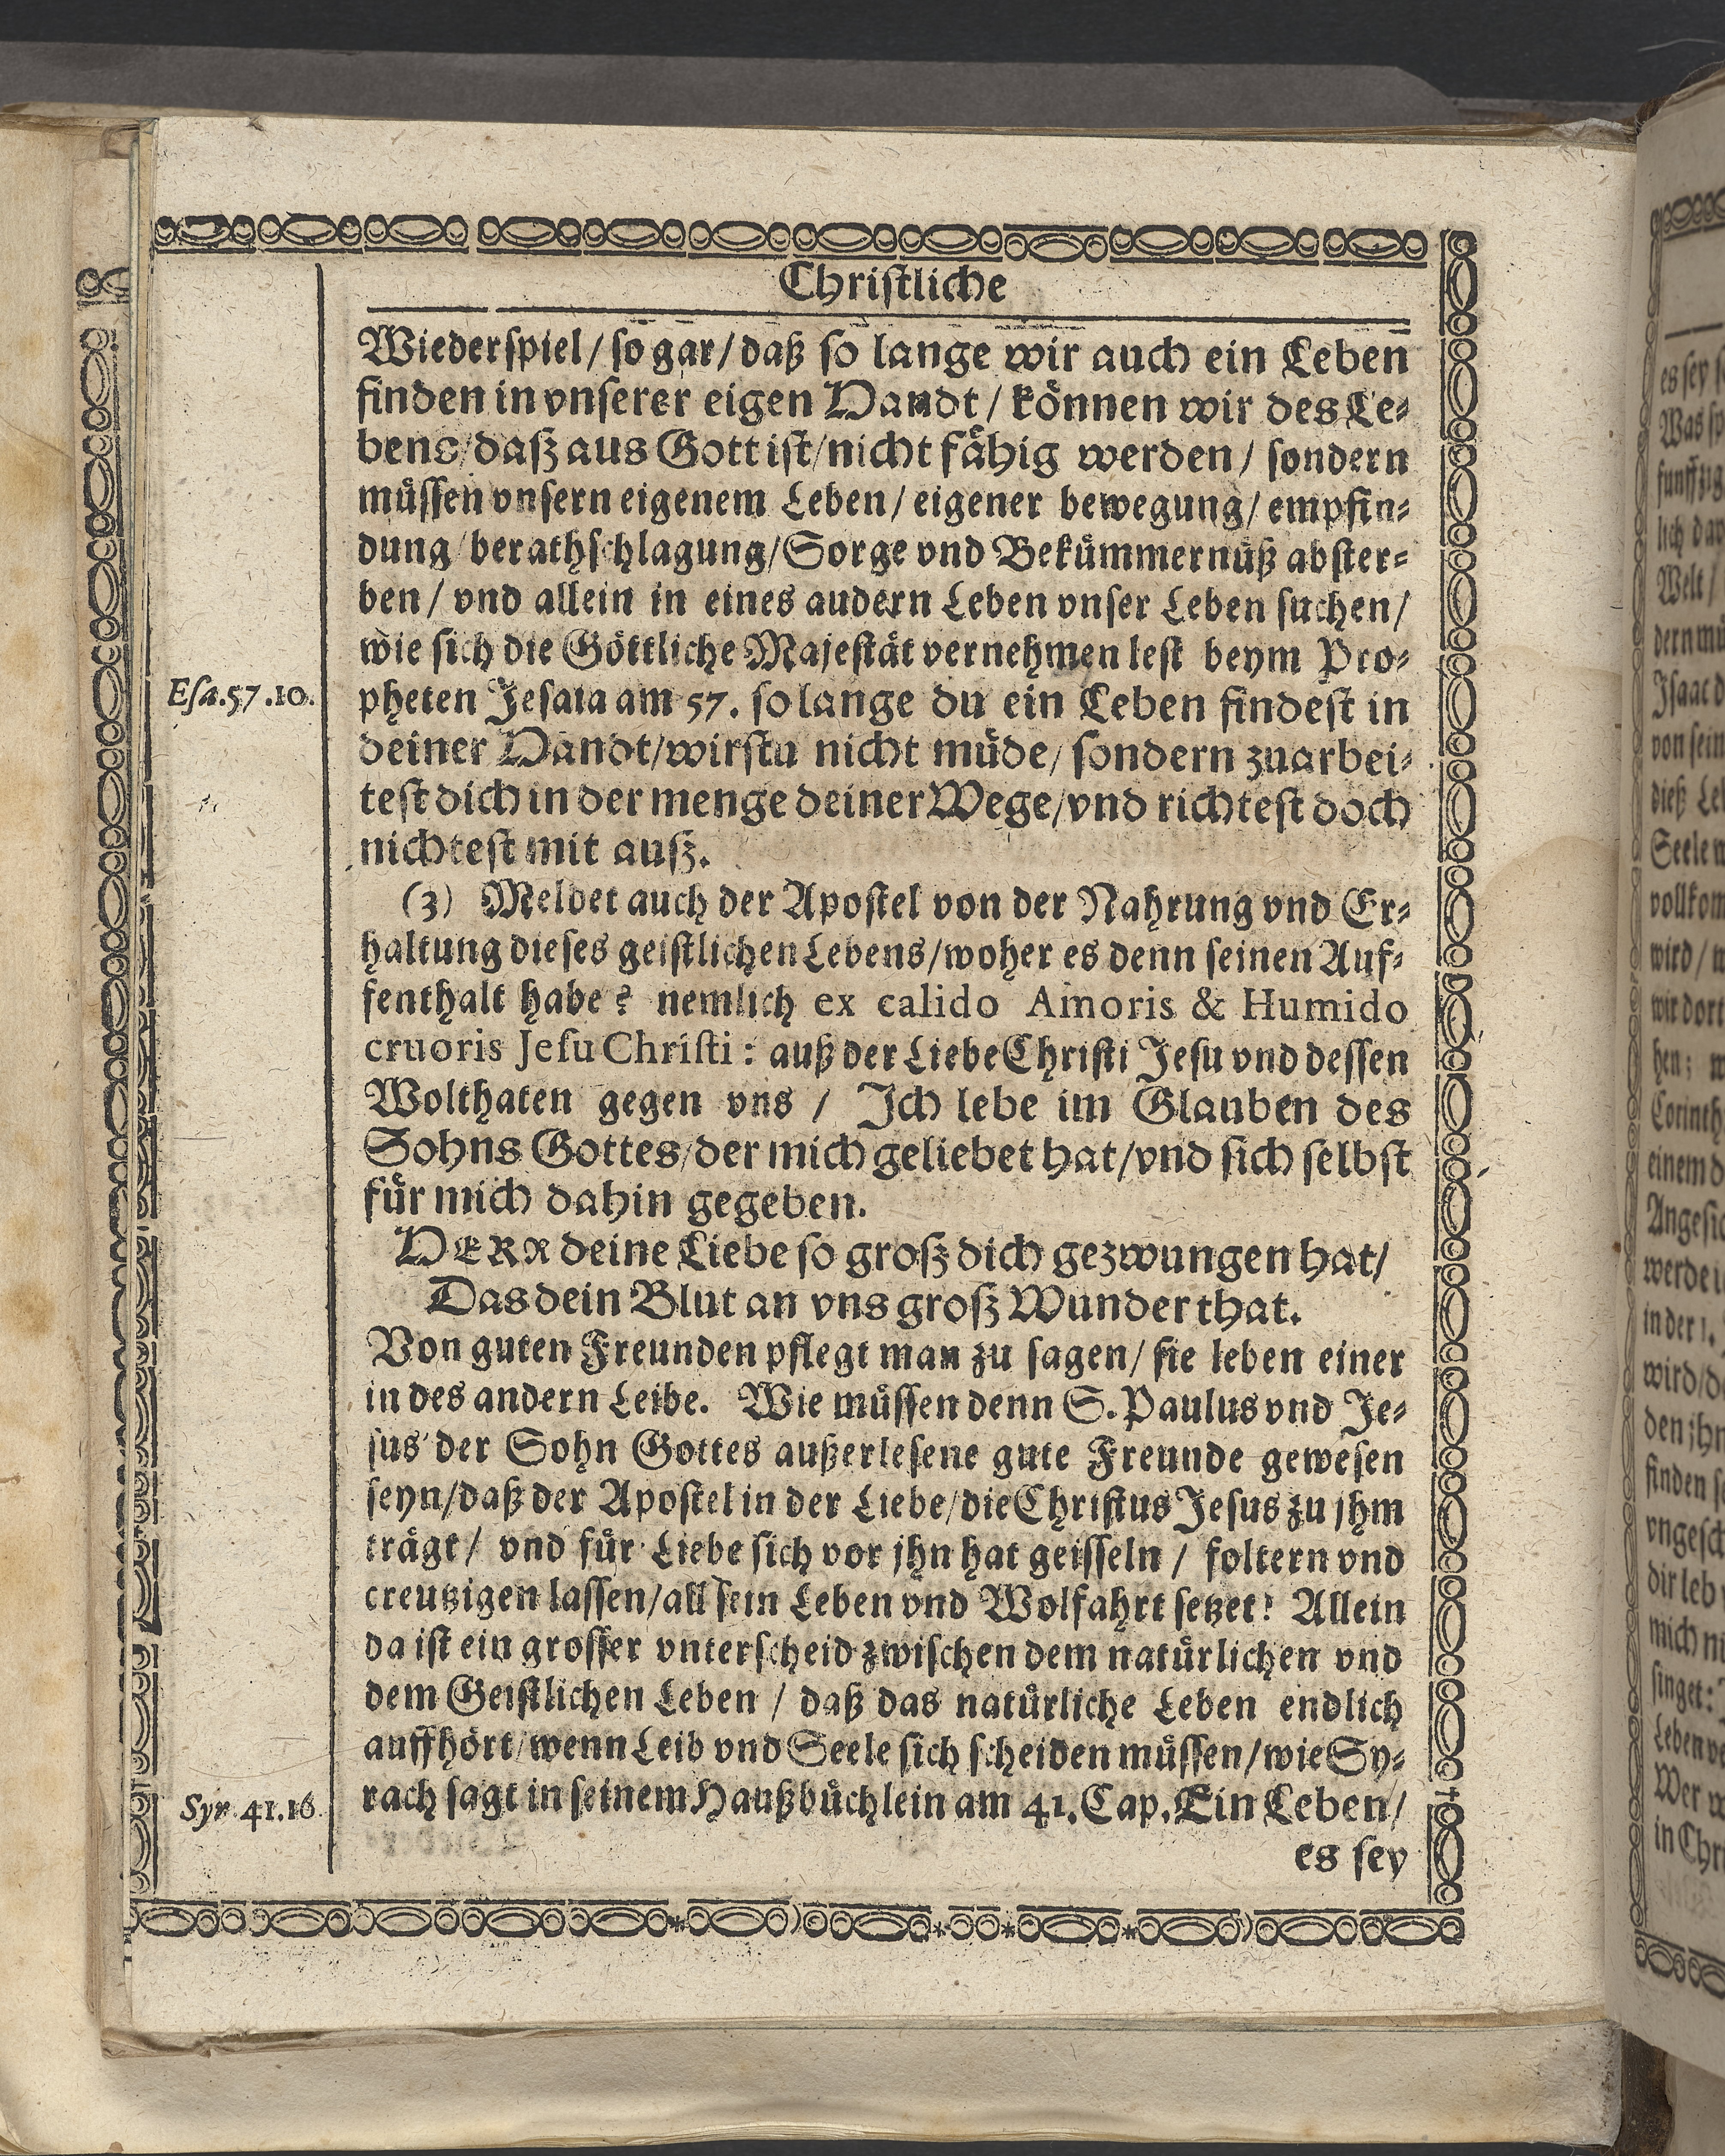 Christliche
Wiederspiel / so gar / daß so lange wir auch ein Leben
finden in vnserer eigen Handt / können wir des Le-
bens / daß aus Gott ist / nicht fähig werden / sondern
müssen vnsern eigenem Leben / eigener bewegung / empfin-
dung / berathschlagung / Sorge vnd Bekümmernüß abster-
ben / vnd allein in eines audern Leben vnser Leben suchen /
wie sich die Göttliche Majestät vernehmen lest beym Pro-
Esa. 57. 10.
pheten Jesaia am 57. so lange du ein Leben findest in
deiner Handt / wirstu nicht müde / sondern zuarbei-
test dich in der menge deiner Wege / vnd richtest doch
nichtest mit auß.
(3) Meldet auch der Apostel von der Nahrung vnd Er-
haltung dieses geistlichen Lebens / woher es denn seinen Auf-
fenthalt habe? nemlich ex calido Amoris & Humido
cruoris Jesu Christi: auß der Liebe Christi Jesu vnd dessen
Wolthaten gegen vns / Ich lebe im Glauben des
Sohns Gottes / der mich geliebet hat / vnd sich selbst
für mich dahin gegeben.
HERR deine Liebe so groß dich gezwungen hat /
Das dein Blut an vns groß Wunder that.
Von guten Freunden pflegt man zu sagen / sie leben einer
in des andern Leibe. Wie müssen denn S. Paulus vnd Je-
sus der Sohn Gottes außerlesene gute Freunde gewesen
seyn / daß der Apostel in der Liebe / die Christus Jesus zu jhm
trägt / vnd für Liebe sich vor jhn hat geisseln / foltern vnd
creutzigen lassen / all sein Leben vnd Wolfahrt setzet? Allein
da ist ein grosser vnterscheid zwischen dem natürlichen vnd
dem Geistlichen Leben / daß das natürliche Leben endlich
auffhört / wenn Leib vnd Seele sich scheiden müssen / wie Sy-
Syr. 41. 16.
rach sagt in seinem Haußbüchlein am 41. Cap. Ein Leben /
es sey